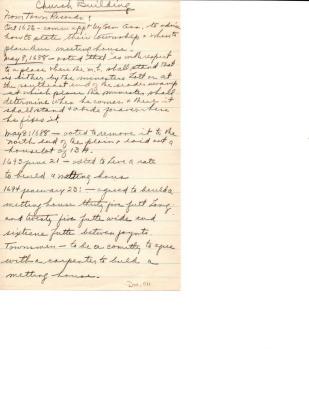 Church Building
From Town Records:
Oct 1636 - comm. appt by Gen. Ass. to advise
how to state their township & where to
place their meeting house.
May 8, 1688 - voted that is with respect
to place where the m.h. shall stand that
is either by the ministers lott or at
the southeast end of the swamp
at which place the minister shall
determine when he comes & there it
shall stand & abide forever where
he fixes it.
May 8, 1688 - voted to remove it to the
north end of the plain & laid out a
houselot of 13 A.
1693 June 21 - voted to have a rate
to build a metting hous
1694 Jeneuary 23: - agreed to build a
metting house thirty five futt long
and twenty five futte wide and
sixteene futte between joynts.
Townsmen - to be a comitty to agree
with a carpenter to build a
metting house.
Doc. 011